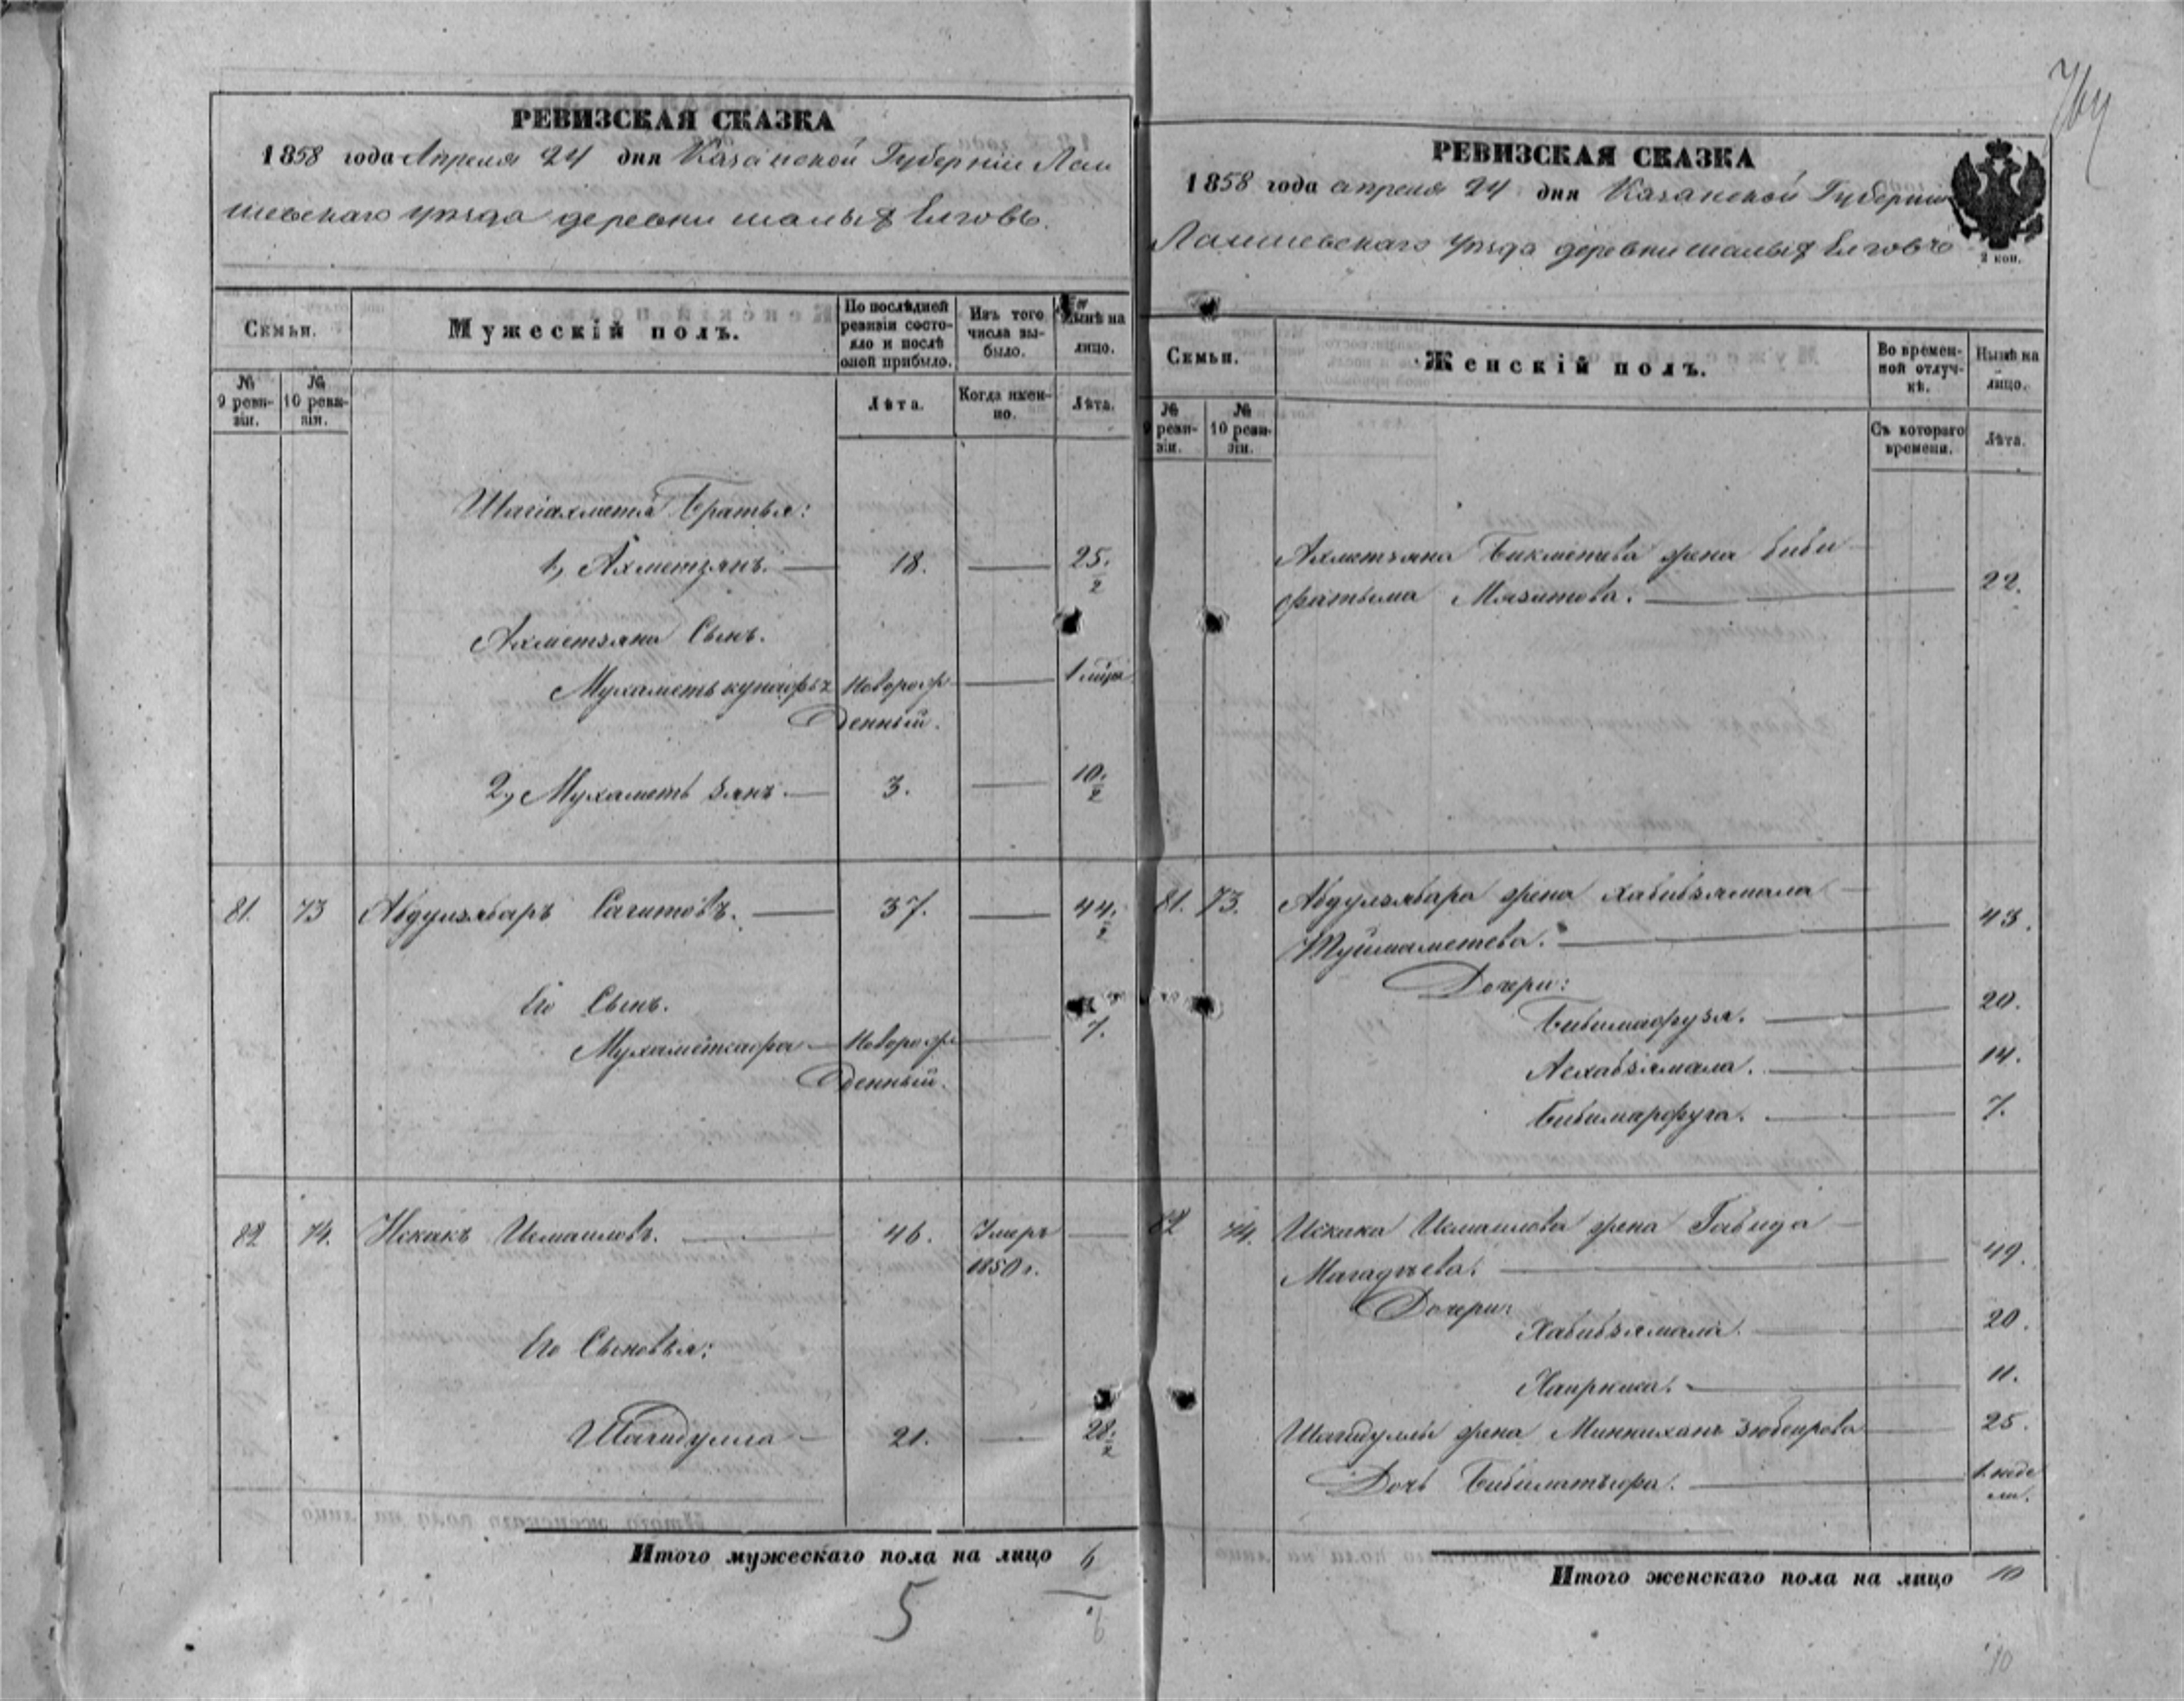 764
РЕВИЗСКАЯ СКАЗКА
1858 года Апреля 24 дня Казанской Губерніи Лаи
шевскаго уѣзда деревни малыхъ Елговъ.
Семьи.
Мужескій полъ.
По послѣдней ревизіи состояло и послѣ оной прибыло.
Изъ того числа выбыло.
Нынѣ на лицо.
№ 9 ревизіи.
№ 10 ревизіи.
Лѣта.
Когда именно.
Лѣта.
Шагіахметя Братья:
1, Ахметзянъ. 18. 25. 2
Ахметзяна Сынъ.
Мухаметь Новорож
денный.
2, Мухаметь зянъ. 3. 10. 2
81. 73 Абдулзябаръ Сагитовъ. 37. 44. 2
Его Сынъ.
Мухаметкафа Новорож
денный. 7.
82 74. Искакъ Исмаиловъ. 46. Умеръ
1850 г.
Его Сыновья:
Шагидулла 21. 28. 2
Итого мужескаго пола на лицо 6
5
6
РЕВИЗСКАЯ СКАЗКА
1858 года апреля 24 дня Казанской Губерніи
Лаишевскаго уѣзда деревни малыхъ Елговъ
2 коп.
Семьи.
Женскій полъ.
Во временной отлучкѣ.
Нынѣ на лицо.
№ 9 ревизіи.
№ 10 ревизіи.
Съ котораго времени.
Лѣта.
Ахметзяна Бикметева жена Биби
фатыма Мязитова. 22.
81. 73. Абдулзябара жена Хабибзямала
Туймаметева. 43.
Дочери:
Бибимафузя. 20.
Асхабзямала. 14.
Бибимарфуга. 7.
82 74. Искака Исмаилова жена Габида
Магадѣева. 49.
Дочери:
Хабибзямала. 20.
Хаирниса. 11.
Шагидуллы жена Миннихань Зюбеирова 25.
Дочь 1. неде
ли.
Итого женскаго пола на лицо 10
10